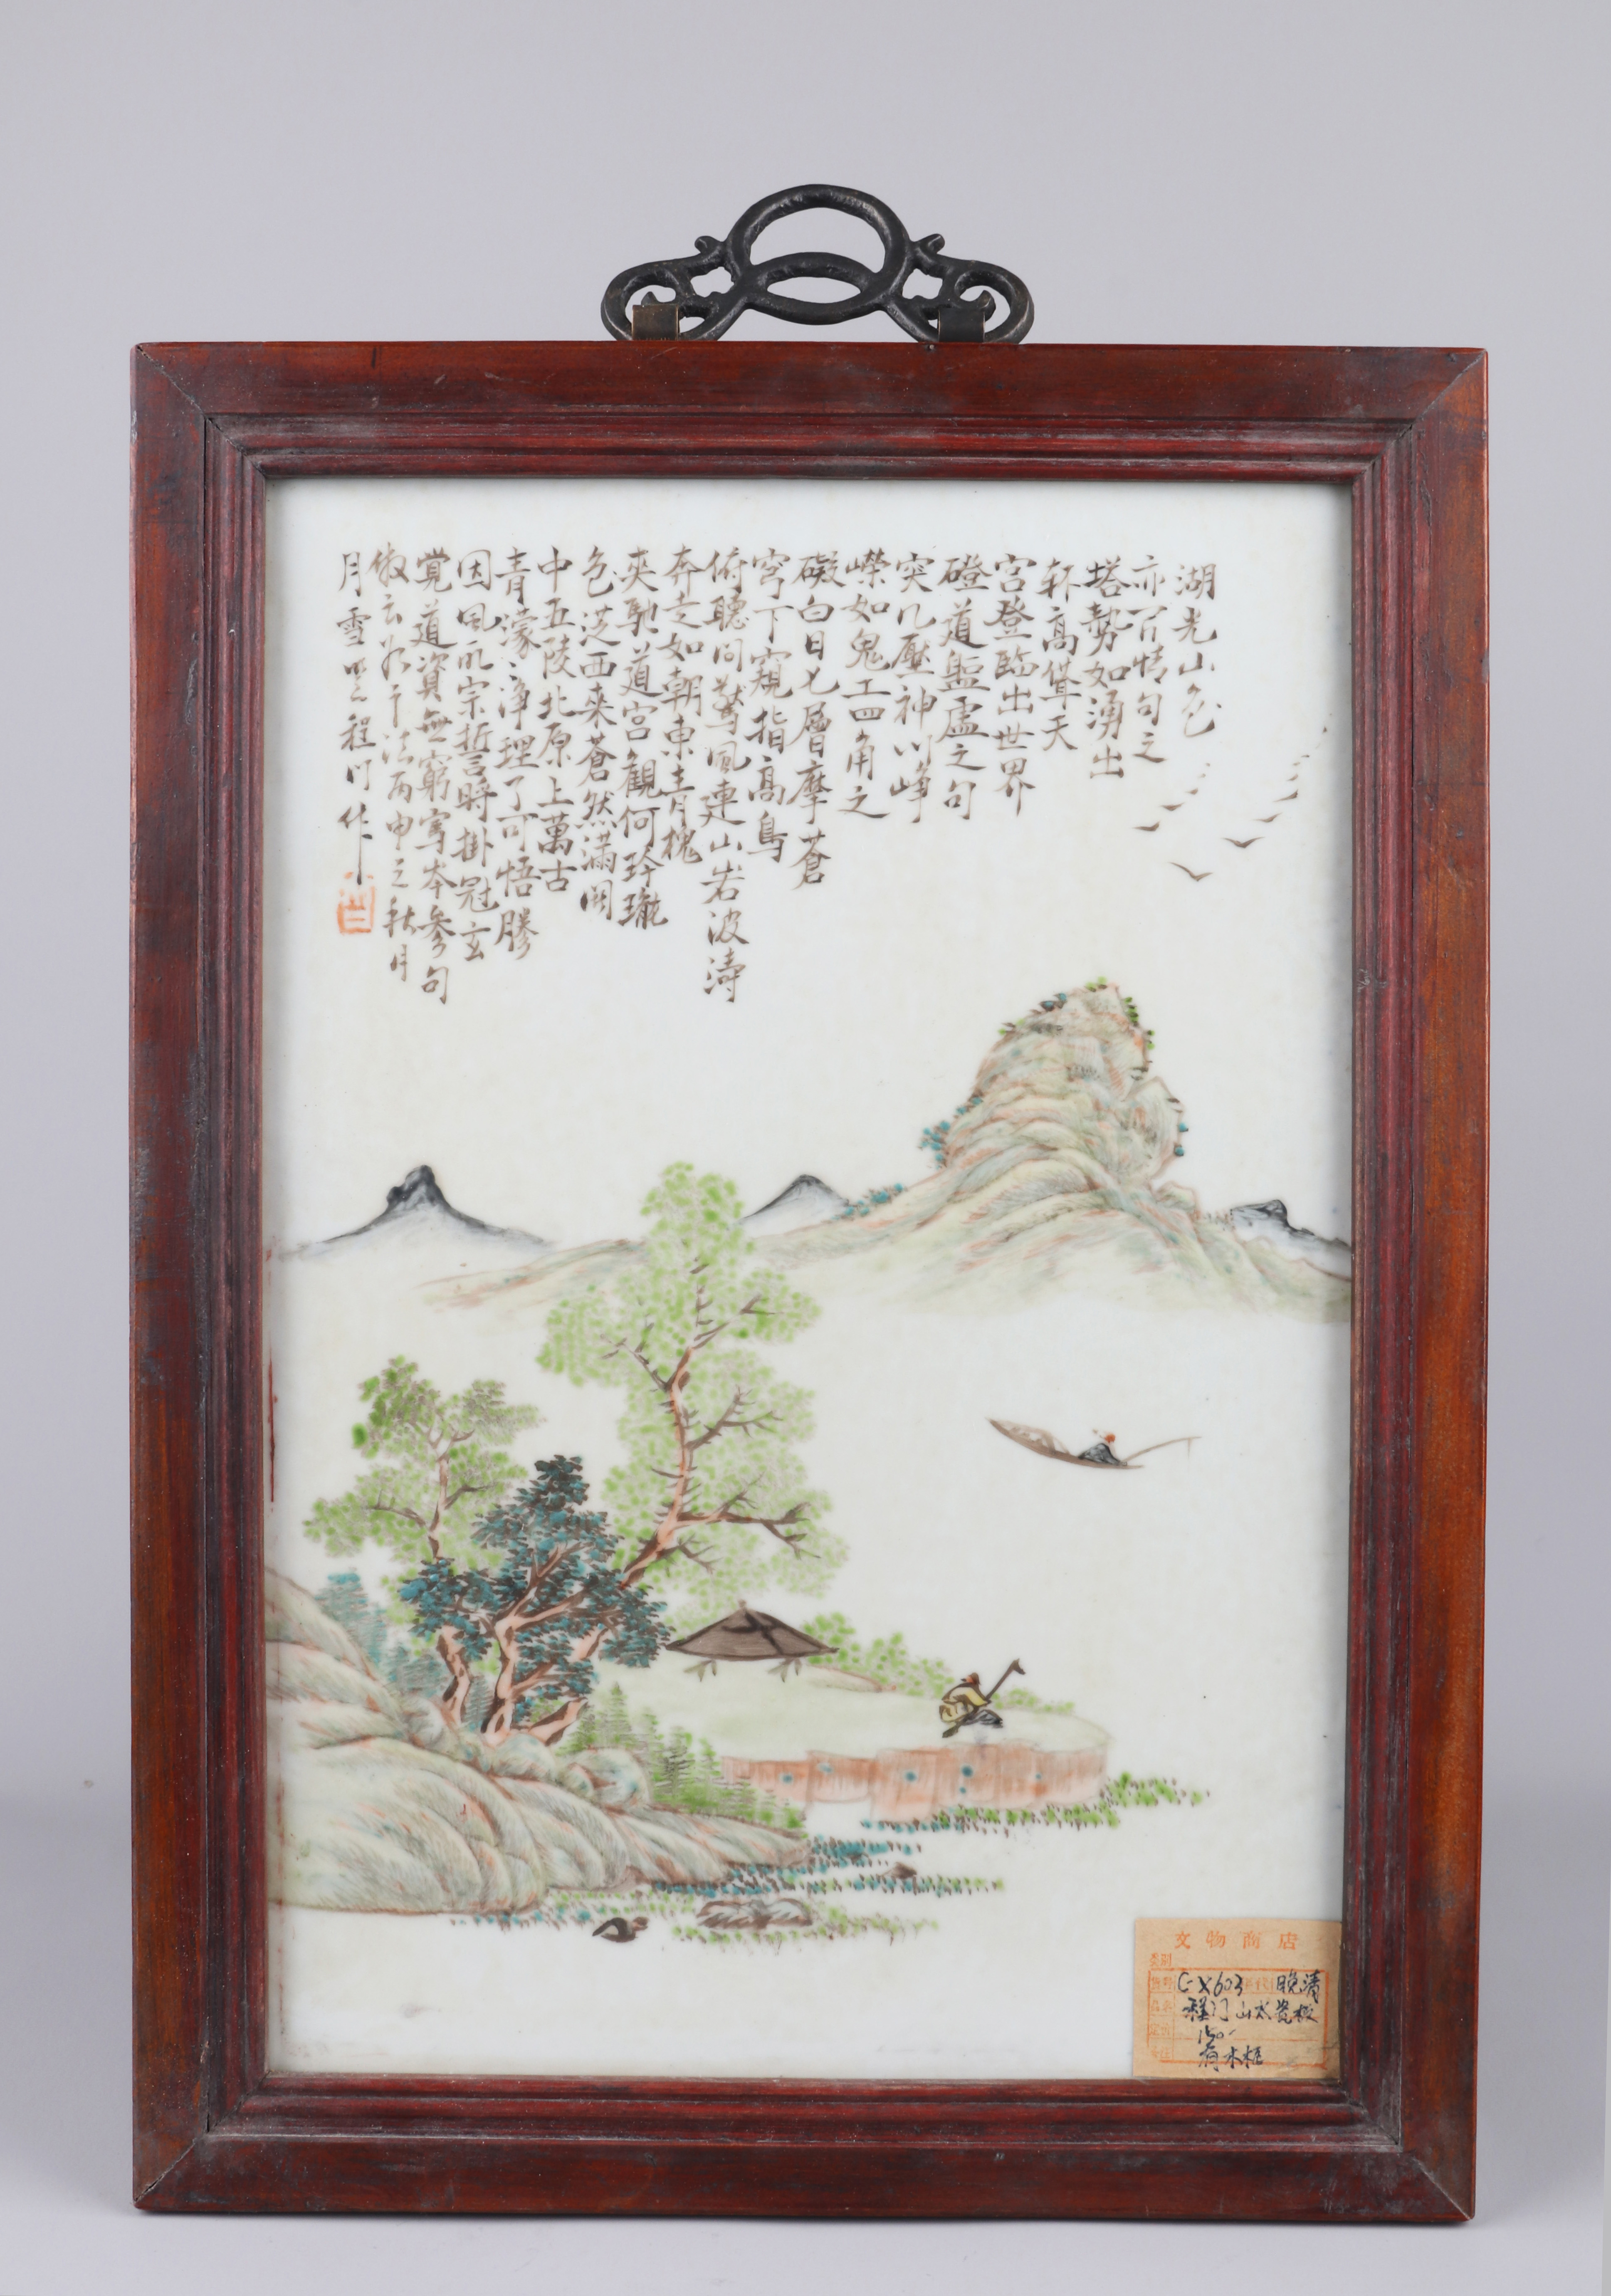 湖光山色
亦有情句之
塔勢如湧出
孤高聳天
宮登臨出世界
磴道盤虛之句
突兀壓神州崢
嶸如鬼工四角之
礙白日七層摩蒼
穹下窺指高鳥
俯聽问驚風連山岩波濤
奔走如朝東青槐
夾馳道宫觀何玲瓏
色從西来蒼然滿関
中五陵北原上萬古
青濛〻浄理了可悟勝
因夙所宗誓時掛冠去
覺道資無窮寫岑参句
倣云
法丙申之秋月
月
雪
程門作
文物商店
类别
C-X603 晚清
程门山水瓷板
150-
有木框